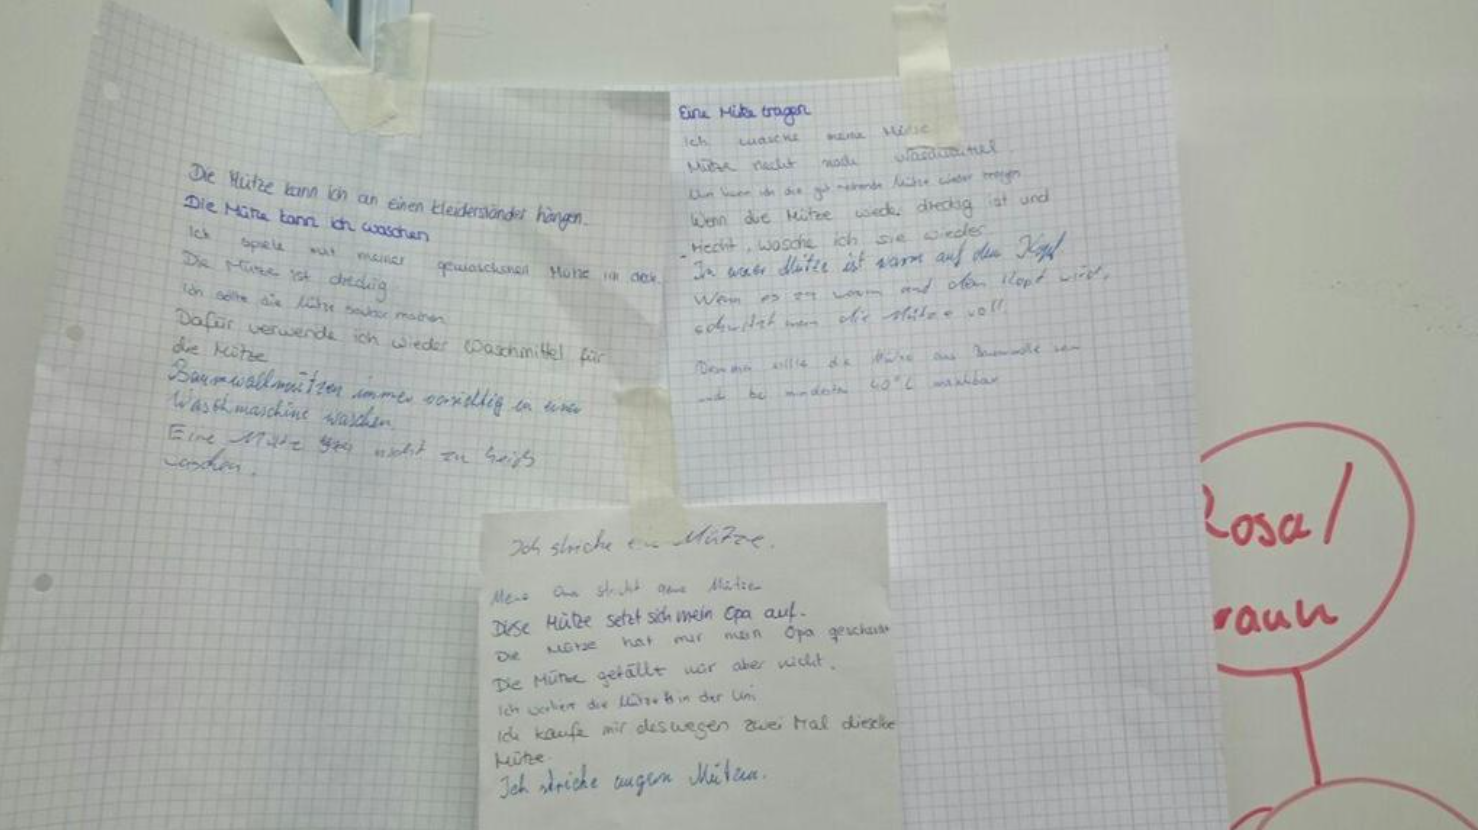 Die Mütze kann ich an einen Kleiderständer hängen.
Die Mütze kann ich waschen
Ich spiele mit meiner gewaschenen Mütze in der
Die Mütze ist dreckig
Ich sollte die Mütze sauber machen
Dafür verwende ich wieder Waschmittel für
die Mütze
Baumwollmützen immer vorsichtig in einer
Waschmaschine waschen.
Eine Mütze nicht zu heiß
waschen.
Eine Mütze tragen
Ich wasche meine Mütze
Mütze riecht nach Waschmittel.
Nun kann ich die gut riechende Mütze wieder tragen
Wenn die Mütze wieder dreckig ist und
riecht, wasche ich sie wieder
Mütze ist warm auf dem Kopf
Wenn es zu warm auf dem Kopf wird,
schwitzt man die Mütze voll.
sollte die Mütze aus Baumwolle sein
und bei mindestens 40°C waschbar
Ich stricke Mütze.
Meine Oma strickt Mützen
Diese Mütze setzt sich mein Opa auf.
Die Mütze hat mir mein Opa geschenkt
Die Mütze gefällt mir aber nicht.
Ich verliere die Mütze in der Uni
Ich kaufe mir deswegen zwei Mal dieselbe
Mütze.
Ich stricke Mützen.
Rosa/
raun